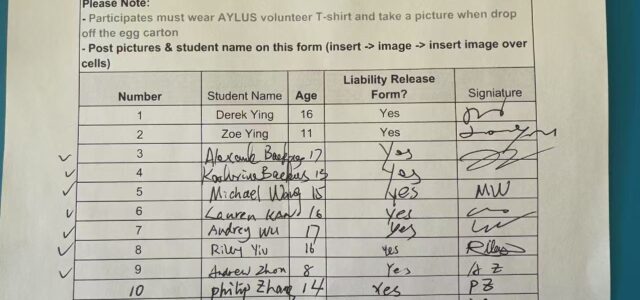 Please Note:
- Participates must wear AYLUS volunteer T-shirt and take a picture when drop
off the egg carton
- Post pictures & student name on this form (insert -> image -> insert image over
cells)
Number Student Name Age Liability Release Form? Signiature
1 Derek Ying 16 Yes
2 Zoe Ying 11 Yes
3 17 Yes
4 Yes
5 Michael Wang 15 yes MW
6 Lauren Kan 16 yes
7 Audrey Wu 17 yes
8 Riley Yiu 16 yes Riley
9 Andrew Zhon 8 Yes AZ
10 philip Zhang 14 Yes PZ